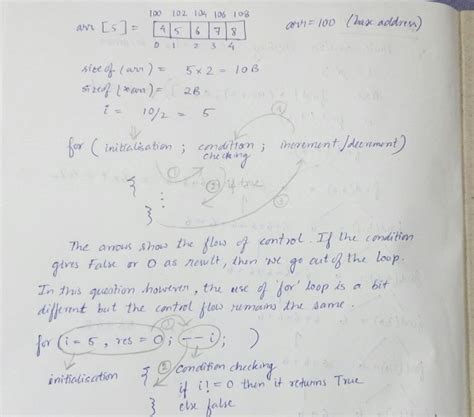 100 102 104 106 108
arr [5] = 4 5 6 7 8 arr = 100 (base address)
0 1 2 3 4
size of (arr) = 5 x 2 = 10 B
sizeof (*arr) = 2B
i = 10/2 = 5
④
for ( initialisation ; condition ; increment/decrement)
checking
①
{ ② if true
⋮ ③
}
The arrows show the flow of control. If the condition
gives False or 0 as result, then we go out of the loop.
In this question however, the use of 'for' loop is a bit
different but the control flow remains the same.
①
for (i = 5 , res = 0; --i; )
{ ② condition checking
initialisation
if i != 0 then it returns True
} else false